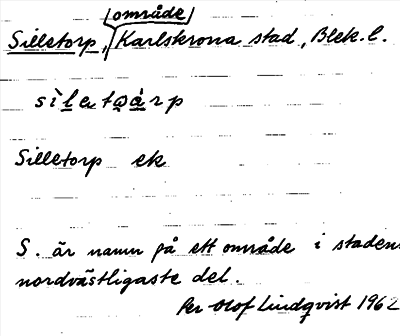 område
Silletorp, Karlskrona stad, Blek. l.
sìlatɷàrp
Silletorp ek
S. är namn på ett område i stadens
nordvästligaste del.
Per Olof Lindqvist 1962